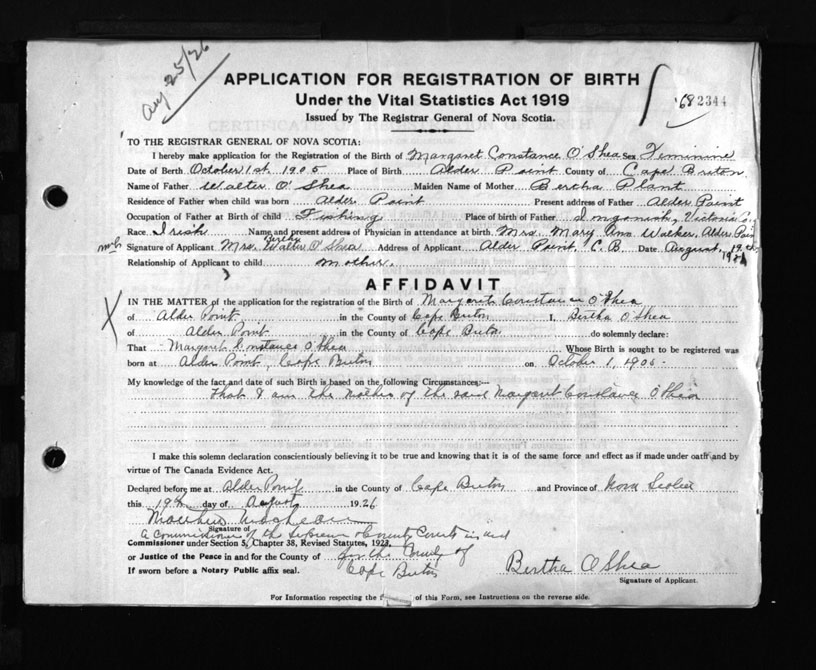 Aug 25/26
APPLICATION FOR REGISTRATION OF BIRTH
Under the Vital Statistics Act 1919
Issued by The Registrar General of Nova Scotia.
682344
TO THE REGISTRAR GENERAL OF NOVA SCOTIA:
I hereby make application for the Registration of the Birth of Margaret Constance O'Shea Sex Feminine
Date of Birth October 1st 1905 Place of Birth Alder Point County of Cape Breton
Name of Father Walter O'Shea Maiden Name of Mother Bertha Plant
Residence of Father when child was born Alder Point Present address of Father Alder Point
Occupation of Father at Birth of child Fishing Place of birth of Father Ingonish, Victoria Co.
Race Irish Name and present address of Physician in attendance at birth Mrs. Mary Ann Walker, Alder Point
Signature of Applicant Mrs. Bertha Walter O'Shea Address of Applicant Alder Point, C.B. Date August, 19th
1926
Relationship of Applicant to child mother.
AFFIDAVIT
IN THE MATTER of the application for the registration of the Birth of Margaret Constance O'Shea
of Alder Point in the County of Cape Breton I, Bertha O'Shea
of Alder Point in the County of Cape Breton do solemnly declare:
That Margaret Constance O'Shea Whose Birth is sought to be registered was
born at Alder Point, Cape Breton on October 1, 1905-
My knowledge of the fact and date of such Birth is based on the following Circumstances:—
That I am the mother of the said Margaret Constance O'Shea
I make this solemn declaration conscientiously believing it to be true and knowing that it is of the same force and effect as if made under oath and by
virtue of The Canada Evidence Act.
Declared before me at Alder Point in the County of Cape Breton and Province of Nova Scotia
this 19th day of August 1926
Signature of
A Commissioner of the Supreme & County Courts in and
Commissioner under Section 5, Chapter 38, Revised Statutes, 1923,
or Justice of the Peace in and for the County of for the County of
If sworn before a Notary Public affix seal. Cape Breton
Bertha O'Shea
Signature of Applicant.
For Information respecting the of this Form, see Instructions on the reverse side.